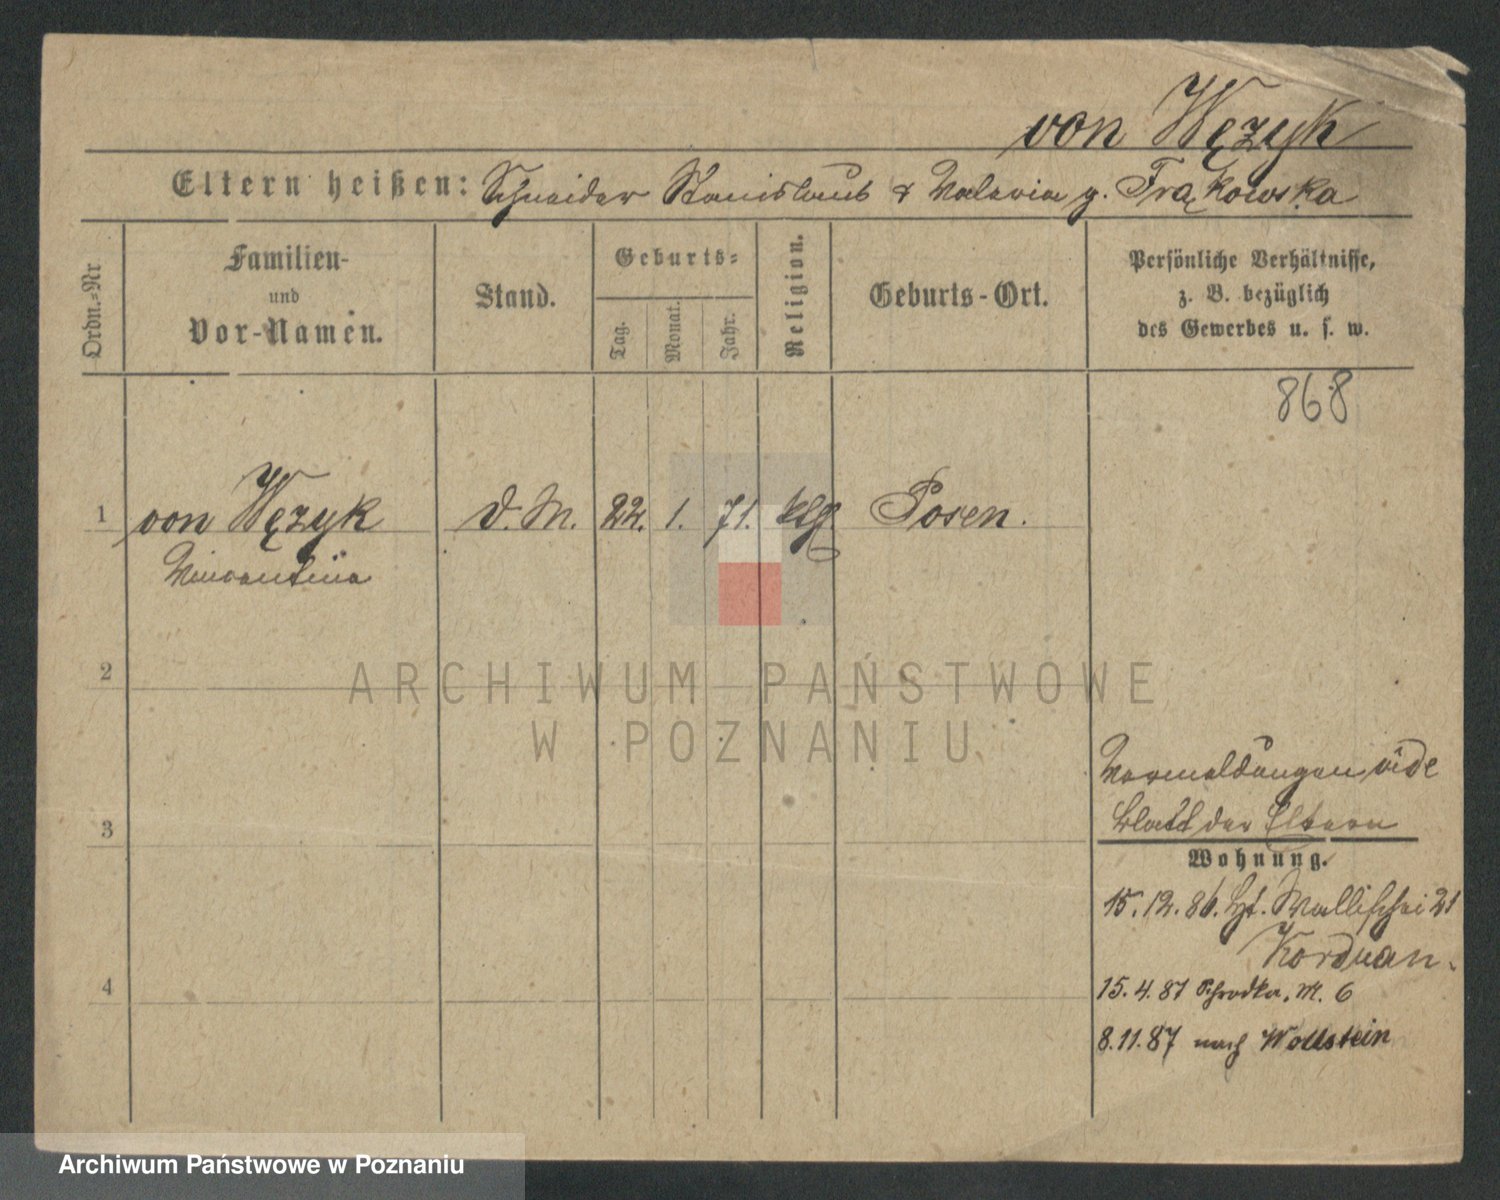 von Wężyk
Eltern heißen: Schneider Stanislaus & Valeria g. Frąkowska
Ordn.-Nr
Familien-
und
Vor-Namen.
Stand.
Geburts-
Tag.
Monat.
Jahr.
Religion.
Geburts-Ort.
Persönliche Verhältnisse,
z. B. bezüglich
des Gewerbes u. s. w.
868
1 von Wężyk D. M. 22. 1. 71. klg Posen.
Vincentina
2
ARCHIWUM PAŃSTWOWE
W POZNANIU
Vormeldungen vide
3
Blatt der Eltern
Wohnung.
15.12.86. Wallischei 21
Korduan.
4
15.4.87 Schrodka, M. 6
8.11.87 nach Wollstein
Archiwum Państwowe w Poznaniu